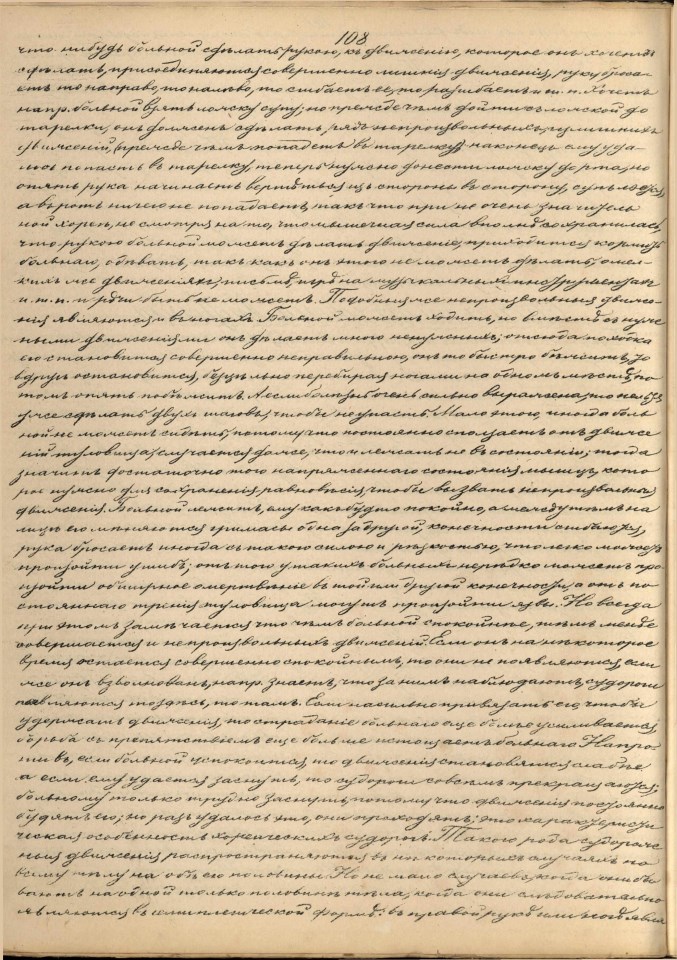 108
что нибудь больной сдѣлать рукою, къ движенію, которое онъ хочетъ
сдѣлать, присоединяются совершенно лишнія движенія, руку броса-
етъ то направо, то налѣво, то сгибаетъ ее, то разгибаетъ и т. п. Хочетъ
напр. больной взять ложку супу; но прежде чѣмъ дойти съ ложкой до
тарелки, онъ долженъ сдѣлать рядъ непроизвольныхъ, излишнихъ
движеній, прежде чѣмъ попадетъ въ тарелку; наконецъ ему уда-
лось попасть въ тарелку, теперь нужно донести ложку до рта, но
опять рука начинаетъ вертѣться изъ стороны въ сторону, супъ
а въ ротъ ничего не попадаетъ, такъ что при не очень значитель-
ной хореѣ, не смотря на то, что мышечная сила вполнѣ сохранилась,
что рукою больной можетъ дѣлать движеніе, приходится кормить
больнаго, одѣвать, такъ какъ онъ этого не можетъ дѣлать; о мел-
кихъ же движеніяхъ, письмѣ, игрѣ на музыкальныхъ инструментахъ
и т. п. и рѣчи быть не можетъ. Подобныя же непроизвольныя движе-
нія являются и въ ногахъ. Больной можетъ ходить, но вмѣстѣ съ нуж-
ными движеніями онъ дѣлаетъ много ненужныхъ; отсюда походка
его становится совершенно неправильною, онъ то быстро бѣжитъ, то
вдругъ остановится, безцѣльно перебирая ногами на одномъ мѣстѣ, по-
томъ опять побѣжитъ. А если болѣзнь очень сильно выражена, то нельзя
уже сдѣлать двухъ шаговъ, чтобы не упасть. Мало этого, иногда боль-
ной не можетъ сидѣть, потому что постоянно сползаетъ отъ движе-
ній туловища; случается даже, что и лежать не въ состояніи; тогда
значитъ достаточно того напряженнаго состоянія мышцъ, кото-
рое нужно для сохраненія равновѣсія, чтобы вызвать непроизвольныя
движенія. Больной лежитъ, ему какъ будто покойно, а между тѣмъ на
лицѣ его мѣняются гримасы одна за другой, конечности сгибаются,
рука бросаетъ иногда съ такою силою и рѣзкостью, что легко можетъ
произойти ушибъ; отъ того у такихъ больныхъ нерѣдко можетъ про-
изойти обширное омертвѣніе въ той или другой конечности, а отъ по-
стояннаго тренія туловища могутъ произойти язвы. Но всегда
при этомъ замѣчается что чѣмъ больной спокойнѣе, тѣмъ менѣе
совершается и непроизвольныхъ движеній. Если онъ на нѣкоторое
время остается совершенно спокойнымъ, то они не появляются, если
же онъ взволнованъ, напр. знаетъ, что за нимъ наблюдаютъ, судороги
появляются то здѣсь, то тамъ. Если насильно привязать его, чтобы
удержать движенія, то страданіе больнаго еще болѣе усиливается,
борьба съ препятствіемъ еще больше истощаетъ больнаго. Напро-
тивъ, если больной успокоится, то движенія становятся слабѣе
а если ему удается заснуть, то судороги совсѣмъ прекращаются;
больному только трудно заснуть, потому что движенія постоянно
будятъ его; но разъ удалось это, они проходятъ; это характеристи-
ческая особенность хореическихъ судорогъ. Такого рода судорож-
ныя движенія распространяются въ нѣкоторыхъ случаяхъ по
всему тѣлу на обѣ его половины. Но не мало случаевъ, когда они бы-
ваютъ на одной только половинѣ тѣла, когда они слѣдовательно
являются въ гемиплегической формѣ: въ правой рукѣ или ногѣ явля